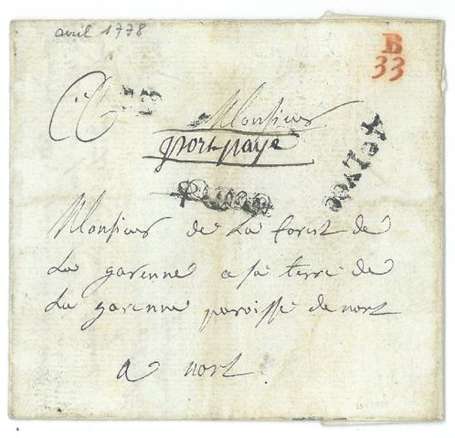 avril 1778
B
33
Monsieur
port paye
Monsieur de La forest de
La garenne a sa terre de
La garenne paroisse de nort
a nort.